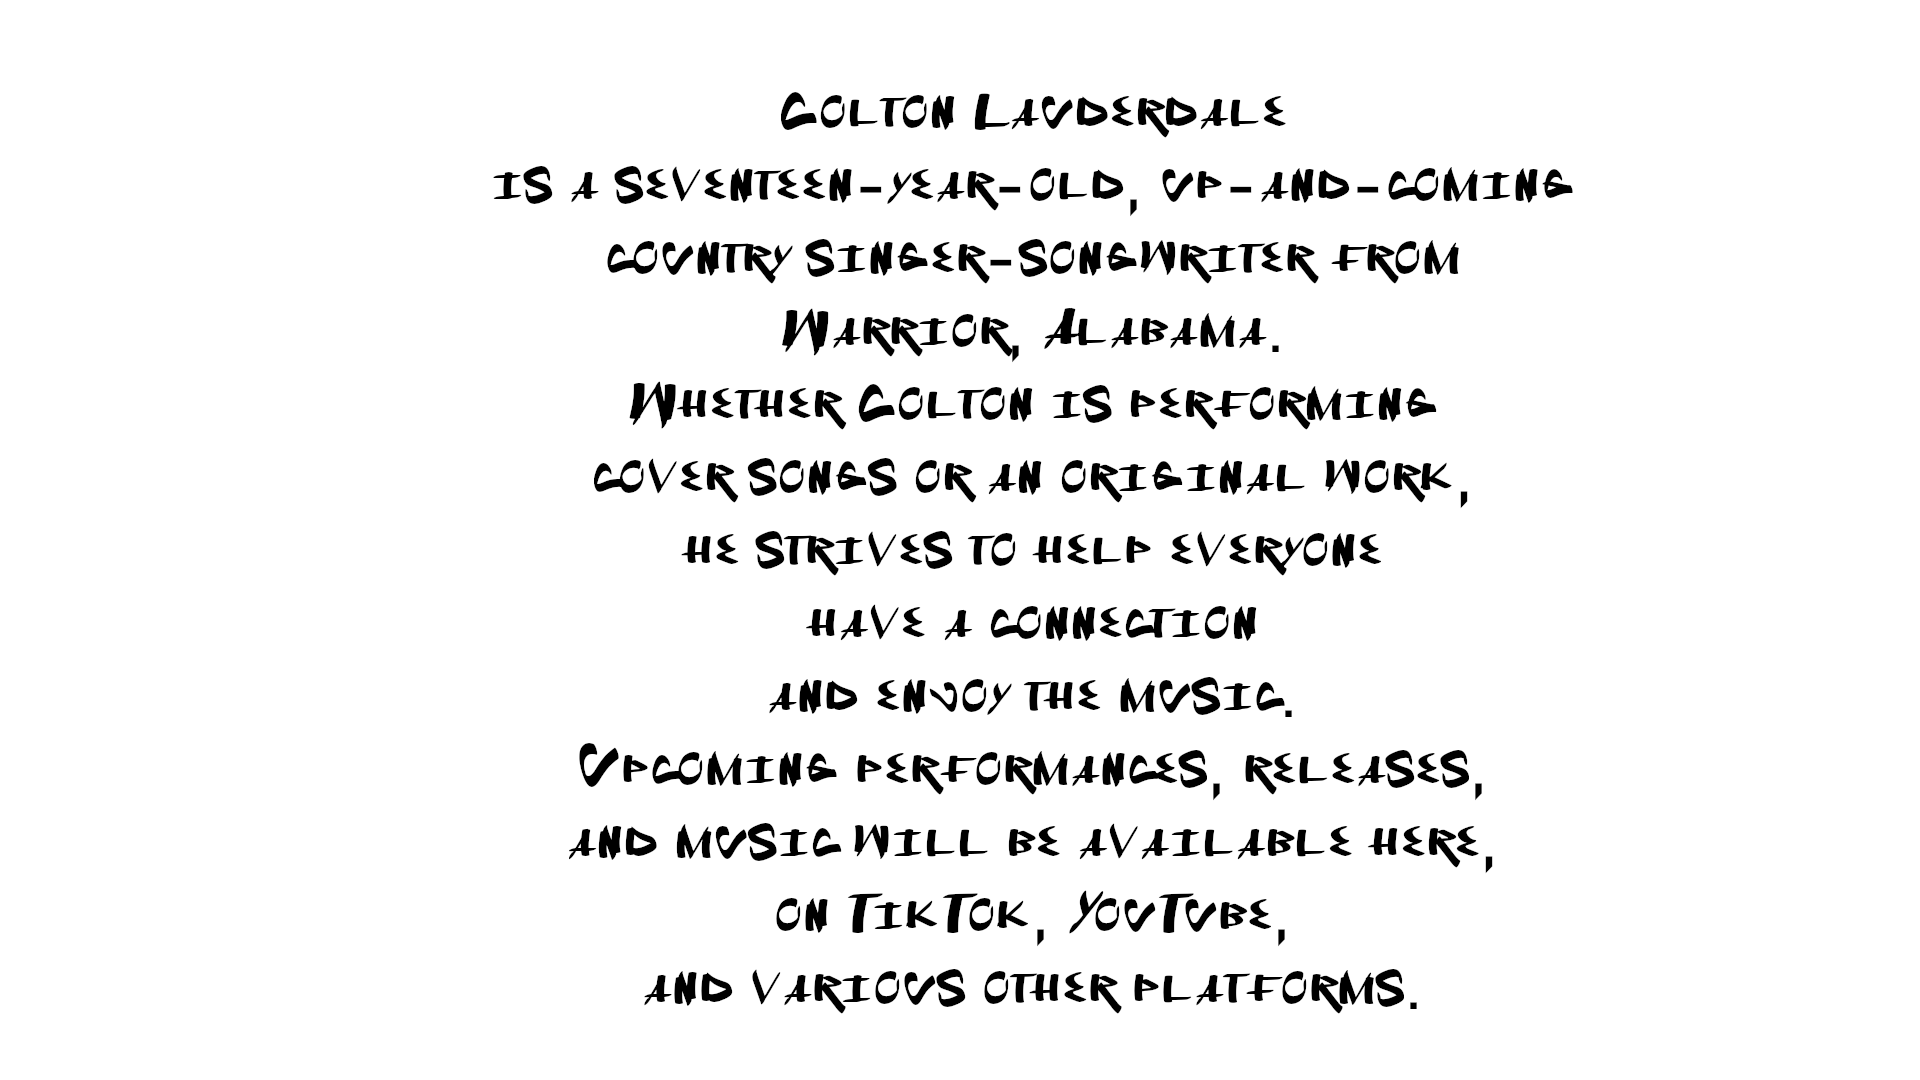 Colton Lauderdale
is a seventeen-year-old, up-and-coming
country singer-songwriter from
Warrior, Alabama.
Whether Colton is performing
cover songs or an original work,
he strives to help everyone
have a connection
and enjoy the music.
Upcoming performances, releases,
and music will be available here,
on TikTok, YouTube,
and various other platforms.